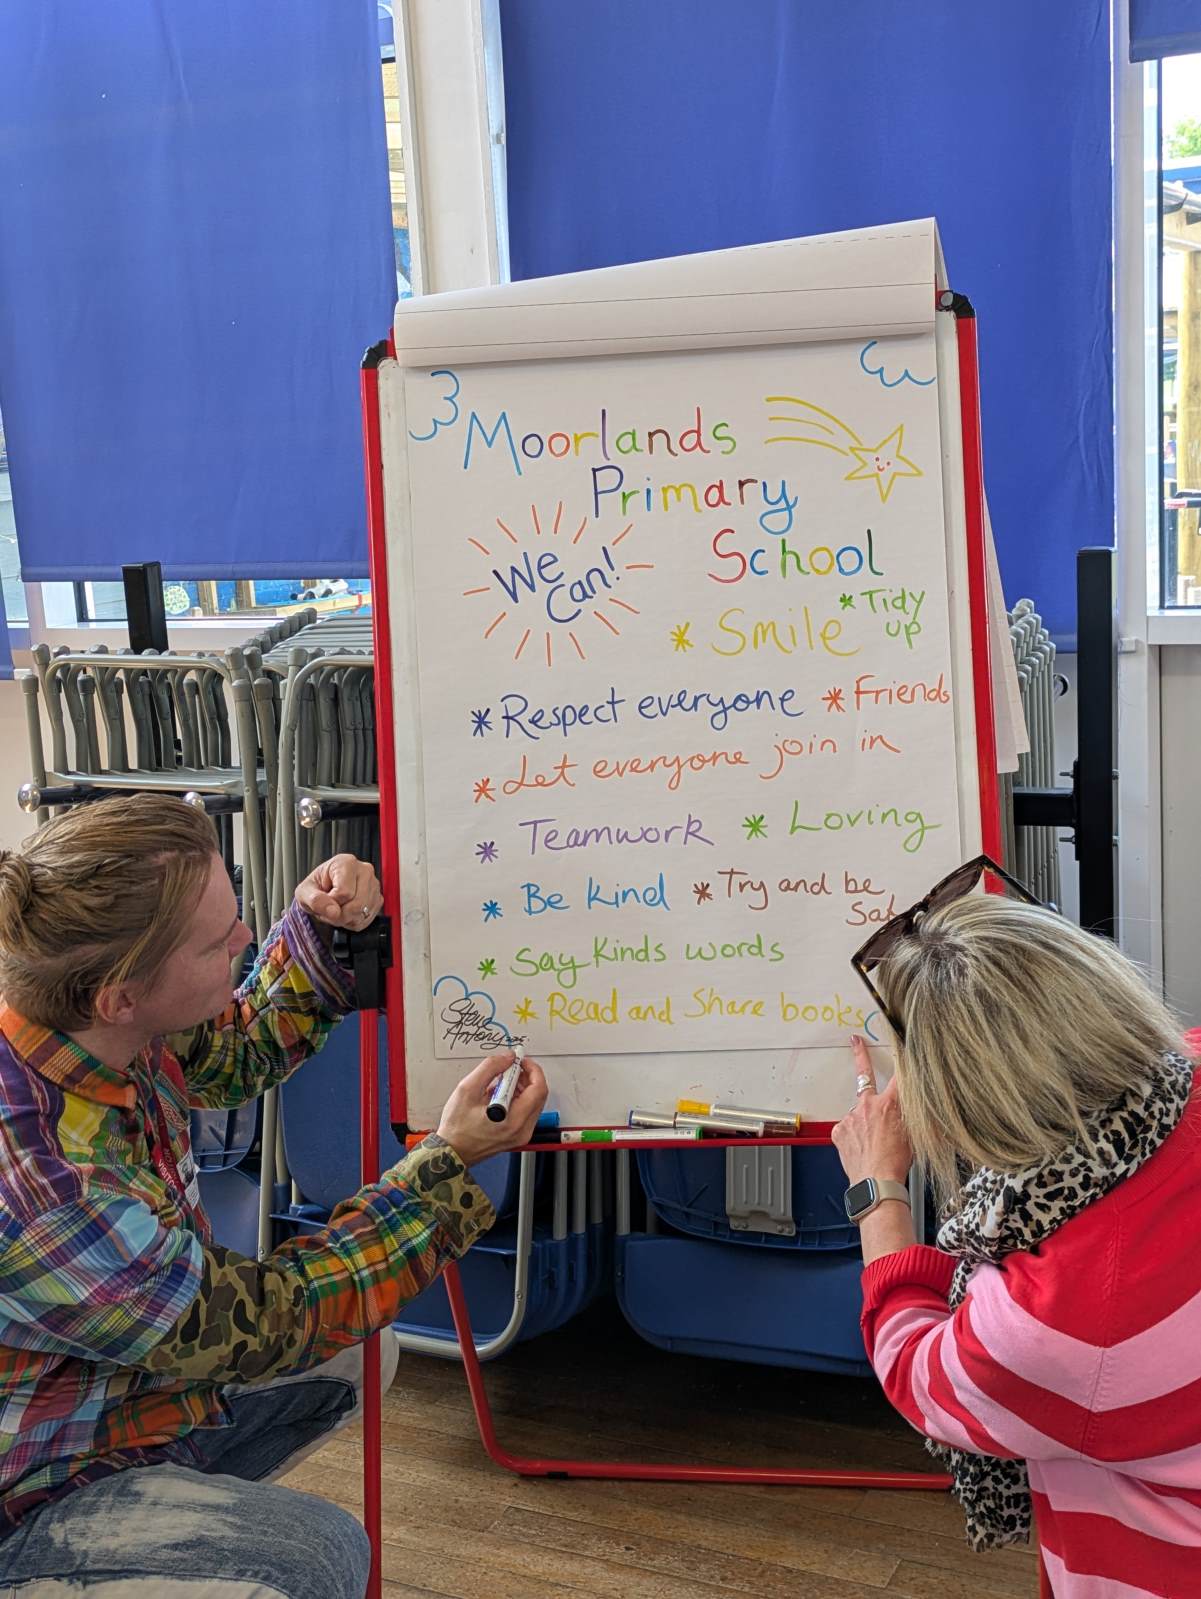 Moorlands
Primary
School
We
Can!
* Smile * Tidy
up
* Respect everyone * Friends
* Let everyone join in
* Teamwork * Loving
* Be Kind * Try and be
* Say Kinds words
* Read and Share books
Steve
Antony